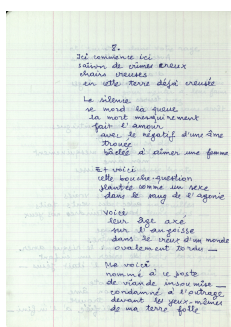 8.
Ici commence ici
saison de crimes creux
chairs creuses
en cette terre déjà creusée
Le silence
se mord la queue
sa mort mesquinement
fait l'amour
avec le négatif d'une âme
trouée
bâclée à aimer une femme
Et voici
cette bouche-question
plantée comme un sexe
dans le sang de l'agonie
Voici
leur âge axé
sur l'angoisse
dans le creux d'un monde
ovalement tordu —
Me voici
nommé à ce poste
de viande insoumise —
condamné à l'outrage
devant les yeux-mêmes
de ma terre folle